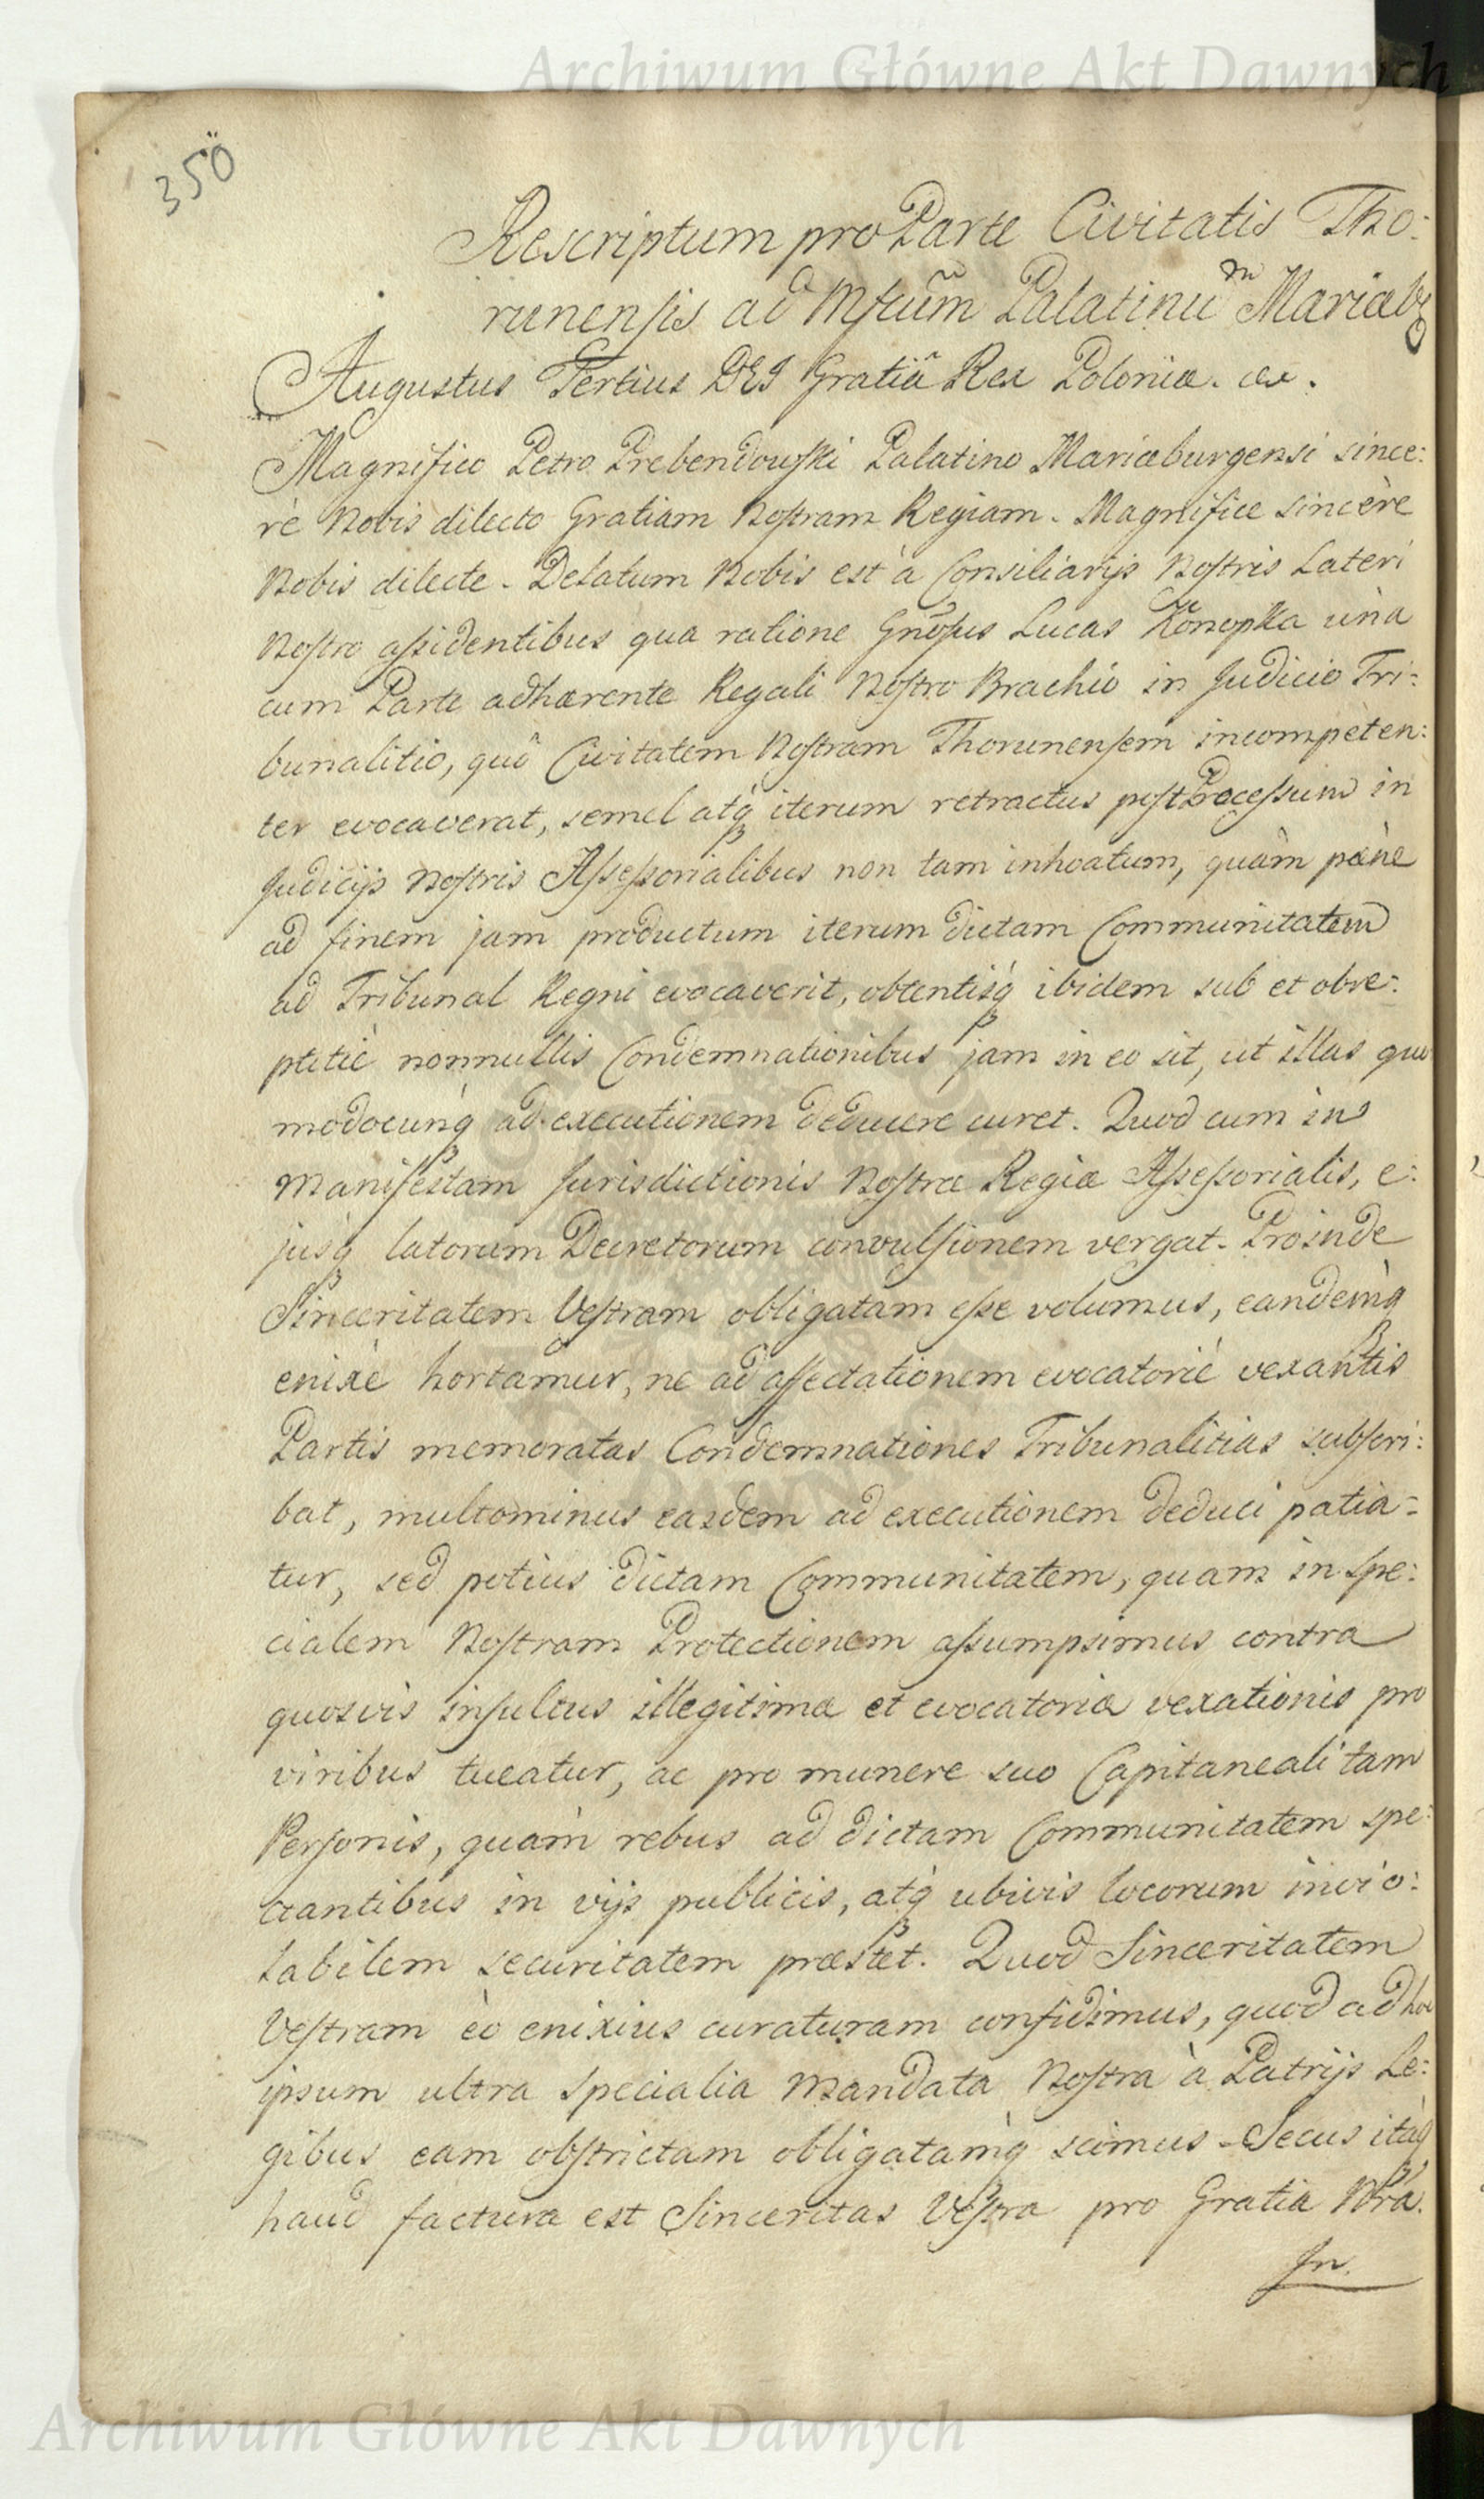 Archiwum Główne Akt Dawnych
350
Rescriptum pro Parte Civitatis Tho:
runensis ad Mfcum Palatinum Mariæb:
Augustus Tertius DEI Gratiâ Rex Poloniæ. etc.
Magnifico Petro Prebendowski Palatino Mariæburgensi since:
rè Nobis dilecto Gratiam Nostram Regiam. Magnifice sincère
Nobis dilecte. Delatum Nobis est à Consiliarijs Nostris Lateri
Nostro assidentibus qua ratione Gnosus Lucas Konopka unà
cum Parte adhærente Regali Nostro Brachio in Judicio Tri:
bunalitio, quô Civitatem Nostram Thorunensem incompeten:
ter evocaverat, semel atq iterum retractus post Processum in
Judicijs Nostris Assessorialibus non tam inhoatum, quàm pæne
ad finem jam productum iterum dictam Communitatem
ad Tribunal Regni evocaverit, obtentisq ibidem sub et obre:
ptitiè nonnullis Condemnationibus jam in eo sit, ut illas quo
modocunq ad executionem deducere curet. Quod cum in
manifestam Jurisdictionis Nostræ Regiæ Assessorialis, e:
jusq latorum Decretorum convulsionem vergat. Proinde
Sinceritatem Vestram obligatam esse volumus, eandemq
enixè hortamur, ne ad affectationem evocatoriè vexantis
Partis memoratas Condemnationes Tribunalitias subscri:
bat, multominus easdem ad executionem deduci patia=
tur, sed potius dictam Communitatem, quam in Spe:
cialem Nostram Protectionem assumpsimus contra
quosvis insultus illegitimæ et evocatoriæ vexationis pro
viribus tueatur, ac pro munere suo Capitaneali tam
Personis, quàm rebus ad dictam Communitatem spe:
ctantibus in vijs publicis, atq ubivis locorum invio:
labilem securitatem præstet. Quod Sinceritatem
Vestram eò enixius curaturam confidimus, quod ad hoc
ipsum ultra Specialia Mandata Nostra à Patrijs Le:
gibus eam obstrictam obligatamq scimus. Secus itaq
haud factura est Sinceritas Vestra pro Gratia Nra.
In.
Archiwum Główne Akt Dawnych